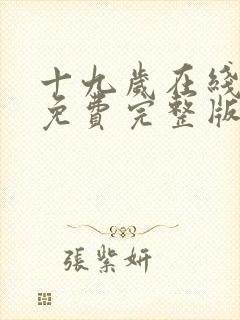 十九歲在綫
免費完整版
張紫妍